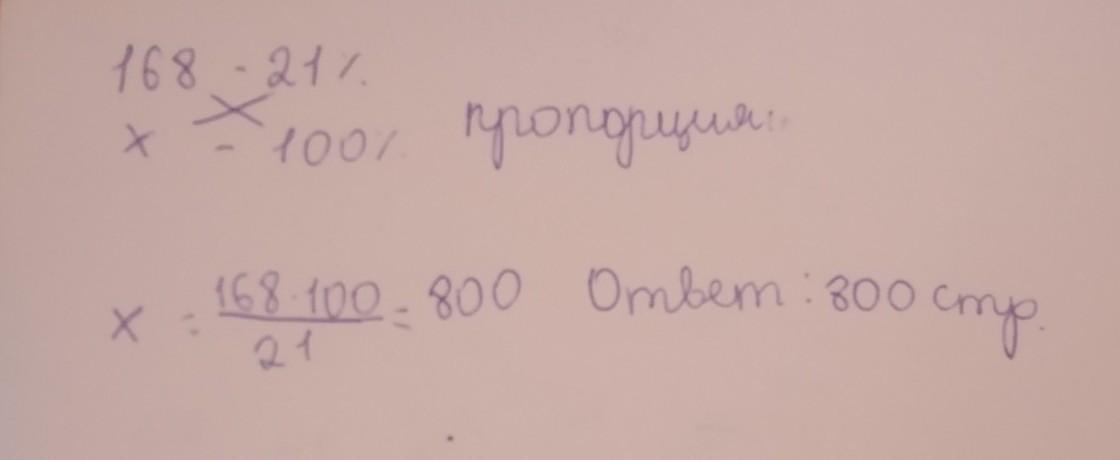 168 - 21%
x - 100% пропорция:
x = 168·100 / 21 = 800 Ответ: 800 стр.